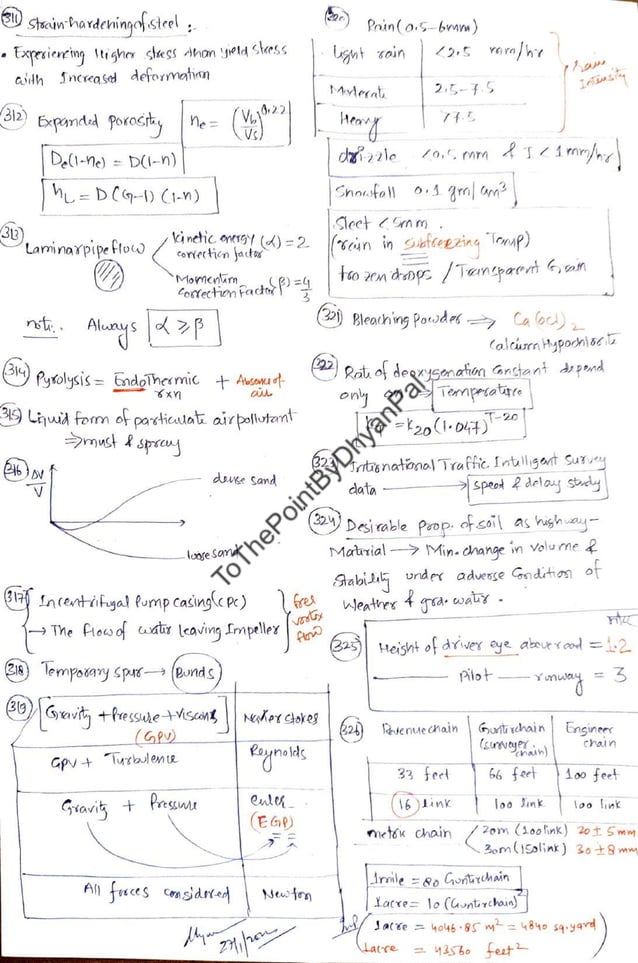 311 Strain-hardening of steel :.
• Experiencing Higher stress than yield stress
with Increased deformation
312 Expanded porosity ne = (Vb/Vs)^0.22
De(1-ne) = D(1-n)
hL = D(G-1)(1-n)
313 Laminar pipe flow
kinetic energy (α) = 2
correction factor
Momentum (β) = 4/3
correction Factor
note:. Always α ≥ β
314 Pyrolysis = EndoThermic + Absence of
rxn air
315 Liquid form of particulate air pollutant
⇒ must & spray
316 ΔV/V
dense sand
loose sand
317 In centrifugal Pump casing (CPC)
→ The flow of water leaving Impeller
free
vortex
flow
318 Temporary spur → Bunds
319 Gravity + Pressure + Viscous Navier stokes
(GPV)
GPV + Turbulence Reynolds
Gravity + Pressure euler
(EGP)
All forces considered Newton
27/1/202
320 Rain (0.5-6mm)
Light rain <2.5 mm/hr
Moderate 2.5-7.5
Heavy >7.5
Rain
Intensity
drizzle <0.5 mm & I < 1 mm/hr
Snowfall 0.1 gm/cm³
Sleet < 5mm.
(rain in subfreezing Temp)
frozen drops / Transparent Grain
321 Bleaching Powder ⇒ Ca(ocl)2
calcium Hypochlorite
322 Rate of deoxygenation Constant depend
only on ⇒ Temperature
= K20(1.047)^T-20
323 International Traffic Intelligent Survey
data → speed & delay study
324 Desirable prop. of soil as highway-
Material → Min. change in volume &
Stability under adverse Condition of
Weather & grd. water.
325 Height of driver eye above road = 1.2
—— Pilot —— runway = 3
326 Revenue chain Gunter chain Engineer
(surveyor chain
chain)
33 feet 66 feet 100 feet
16 link 100 link 100 link
metric chain 20m (100 link) 20 ± 5mm
30m (150 link) 30 ± 8mm
1 mile = 80 Gunter chain
1 acre = 10 (Gunter chain)²
Imp
1 acre = 4046.85 m² = 4840 sq. yard
1 acre = 43560 feet²
ToThePointByDhyanPal